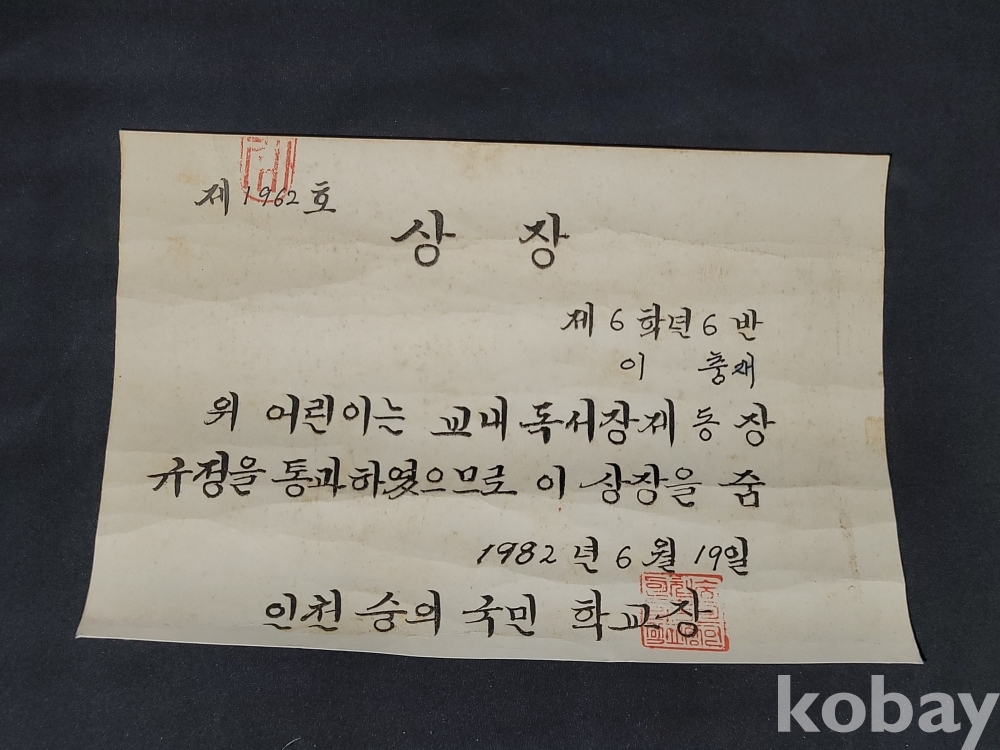 제 1962 호
상 장
제 6 학년 6 반
이 충재
위 어린이는 교내 독서장제 동 장
규정을 통과하였으므로 이 상장을 줌
1982 년 6 월 19일
인천 숭의 국민 학교장
kobay